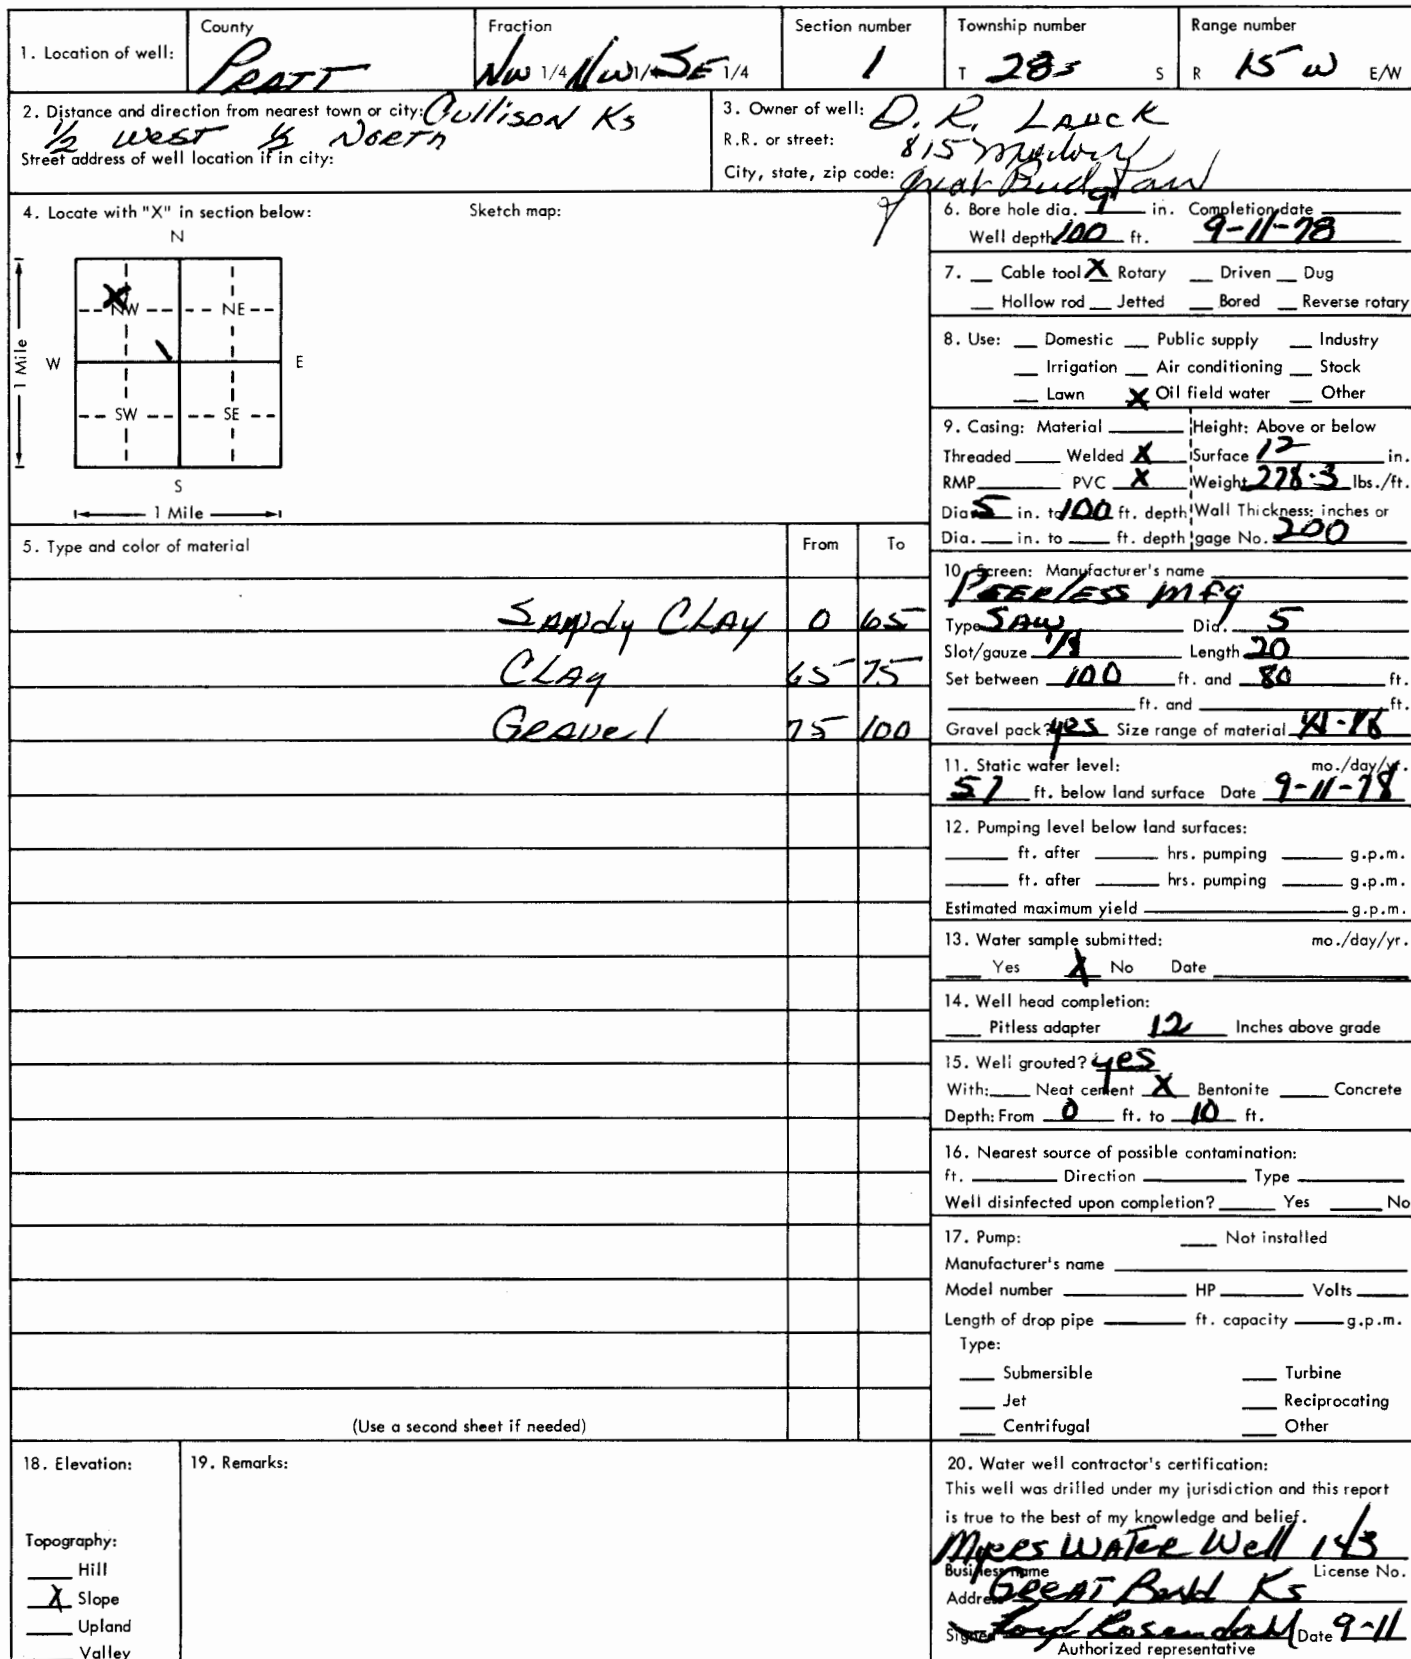 1. Location of well:
County
PRATT
Fraction
NW 1/4 NW 1/4 SE 1/4
Section number
1
Township number
T 28s S
Range number
R 15 W E/W
2. Distance and direction from nearest town or city: Cullison Ks
1/2 West 1/2 North
Street address of well location if in city:
3. Owner of well: D. R. LAUCK
R.R. or street: 815
City, state, zip code: Great Bend
4. Locate with "X" in section below:
Sketch map:
N
X
NW NE
W E
1 Mile
SW SE
S
1 Mile
5. Type and color of material From To
SANDY CLAY 0 65
CLAY 65 75
GRAVEl 75 100
(Use a second sheet if needed)
6. Bore hole dia. 9 in. Completion date
Well depth 100 ft. 9-11-78
7. Cable tool X Rotary Driven Dug
Hollow rod Jetted Bored Reverse rotary
8. Use: Domestic Public supply Industry
Irrigation Air conditioning Stock
Lawn X Oil field water Other
9. Casing: Material Height: Above or below
Threaded Welded X Surface 12 in.
RMP PVC X Weight 278.3 lbs./ft.
Dia. 5 in. to 100 ft. depth Wall Thickness: inches or
Dia. in. to ft. depth gage No. 200
10. Screen: Manufacturer's name
PEERlESS mfg
Type SAW Dia. 5
Slot/gauze 1/8 Length 20
Set between 100 ft. and 80 ft.
ft. and ft.
Gravel pack? yes Size range of material
11. Static water level: mo./day/yr.
57 ft. below land surface Date 9-11-78
12. Pumping level below land surfaces:
ft. after hrs. pumping g.p.m.
ft. after hrs. pumping g.p.m.
Estimated maximum yield g.p.m.
13. Water sample submitted: mo./day/yr.
Yes X No Date
14. Well head completion:
Pitless adapter 12 Inches above grade
15. Well grouted? yes
With: Neat cement X Bentonite Concrete
Depth: From 0 ft. to 10 ft.
16. Nearest source of possible contamination:
ft. Direction Type
Well disinfected upon completion? Yes No
17. Pump: Not installed
Manufacturer's name
Model number HP Volts
Length of drop pipe ft. capacity g.p.m.
Type:
Submersible Turbine
Jet Reciprocating
Centrifugal Other
18. Elevation:
Topography:
Hill
X Slope
Upland
Valley
19. Remarks:
20. Water well contractor's certification:
This well was drilled under my jurisdiction and this report
is true to the best of my knowledge and belief.
Myers WATer Well 143
Business name License No.
Address GREAT Bend Ks
Signed Rosendahl Date 9-11
Authorized representative